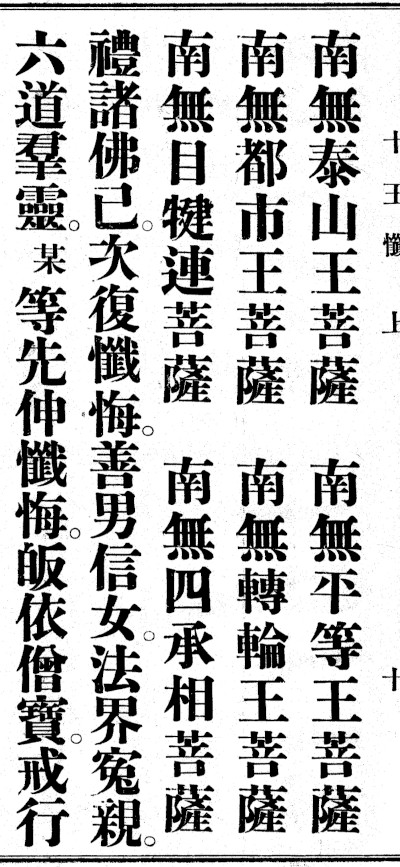 十王懺上　十
南無泰山王菩薩　南無平等王菩薩
南無都市王菩薩　南無轉輪王菩薩
南無目犍連菩薩　南無四承相菩薩
禮諸佛已。次復懺悔。善男信女。法界冤親。
六道羣靈。某等先伸懺悔。皈依僧寶。戒行